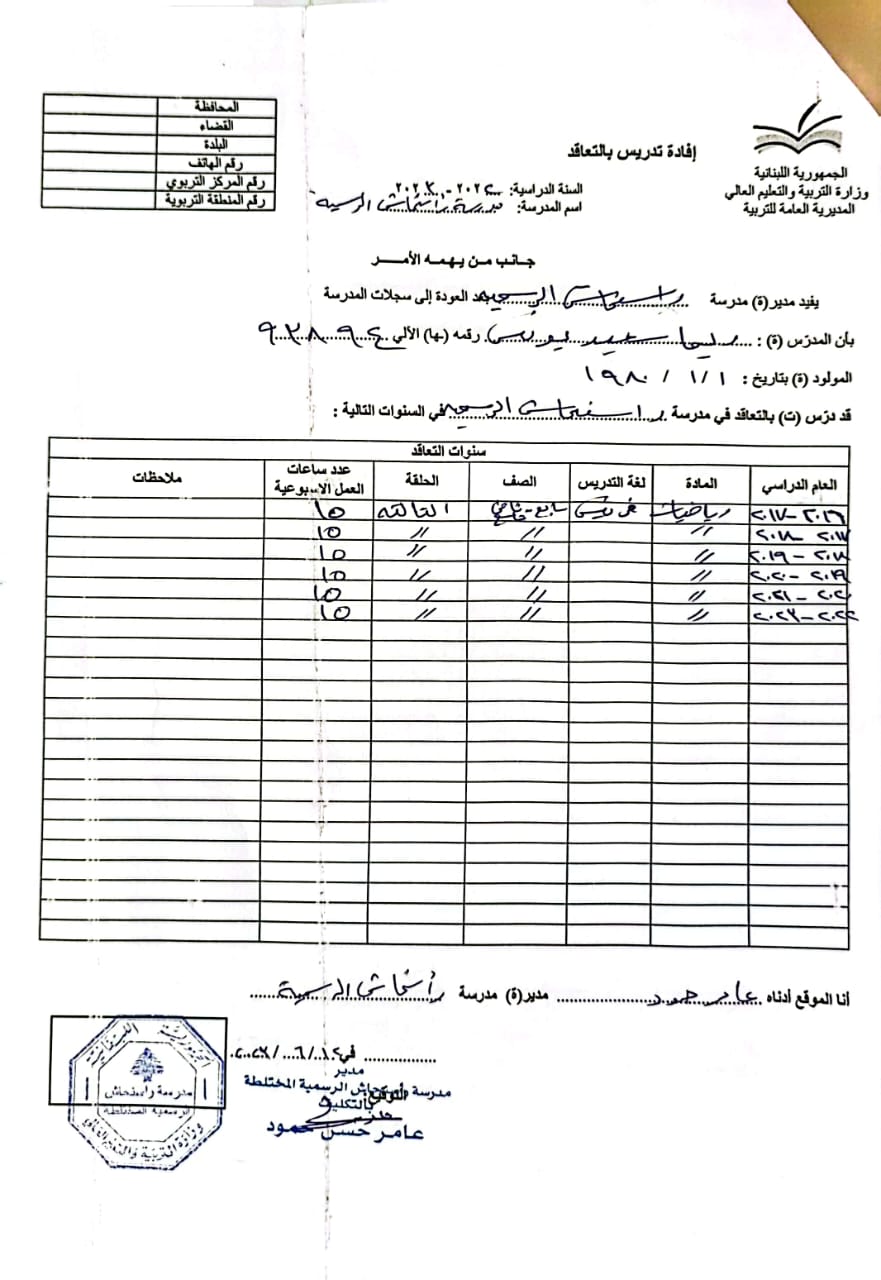 المحافظة
القضاء
البلدة
رقم الهاتف
رقم المركز التربوي
رقم المنطقة التربوية
الجمهورية اللبنانية
وزارة التربية والتعليم العالي
المديرية العامة للتربية
إفادة تدريس بالتعاقد
السنة الدراسية: ٢٠٢٢-٢٠٢٣
اسم المدرسة: مدرسة راسنحاش الرسمية
جانب من يهمه الأمر
يفيد مدير(ة) مدرسة راسنحاش الرسمية بعد العودة إلى سجلات المدرسة
بأن المدرّس (ة) : ريما سعيد يونس رقمه (ها) الآلي ٩٣٨٩٤
المولود (ة) بتاريخ : ١/١/١٩٨٠
قد درّس (ت) بالتعاقد في مدرسة راسنحاش الرسمية في السنوات التالية :
سنوات التعاقد
العام الدراسي المادة لغة التدريس الصف الحلقة عدد ساعات العمل الاسبوعية ملاحظات
٢٠١٦-٢٠١٧ رياضيات فرنسي سابع-ثامن الثالثة ١٥
٢٠١٧-٢٠١٨ // // // ١٥
٢٠١٨-٢٠١٩ // // // ١٥
٢٠١٩-٢٠٢٠ // // // ١٥
٢٠٢٠-٢٠٢١ // // // ١٥
٢٠٢٢-٢٠٢٣ // // // ١٥
أنا الموقع أدناه عامر حمود مدير(ة) مدرسة رأسنحاش الرسمية
في /٦/٢٠٢٣
مدير
مدرسة رأسنحاش الرسمية المختلطة
التوقيع
بالتكليف
عامر حسن حمود
الجمهورية اللبنانية
مدرسة راسنحاش
الرسمية المختلطة
وزارة التربية والتعليم العالي